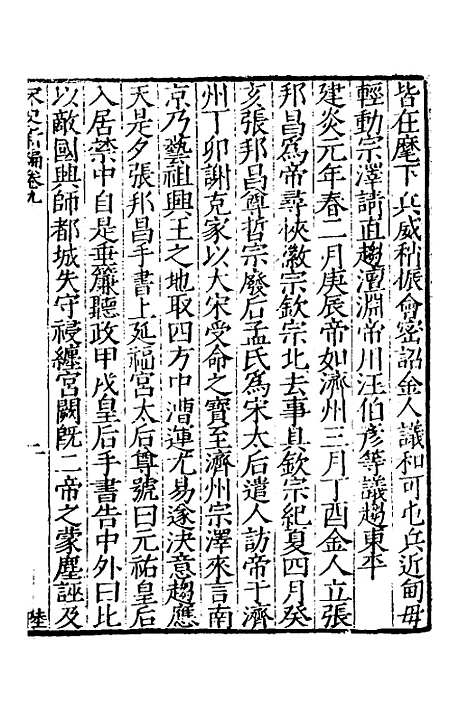 皆在麾下兵威稍振會密詔金人議和可屯兵近甸毋
輕動宗澤請直趨澶淵帝用汪伯彥等議趨東平
建炎元年春二月庚辰帝如濟州三月丁酉金人立張
邦昌爲帝尋挾徽宗欽宗北去事具欽宗紀夏四月癸
亥張邦昌尊哲宗廢后孟氏爲宋太后遣人訪帝于濟
州丁卯謝克家以大宋受命之寶至濟州宗澤來言南
京乃藝祖興王之地取四方中漕運尤易遂決意趨應
天是夕張邦昌手書上延福宮太后尊號曰元祐皇后
入居禁中自是垂簾聽政甲戌皇后手書告中外曰比
以敵國興師都城失守祲纏宮闕旣二帝之蒙塵誣及
宋史新編卷九
二
陸